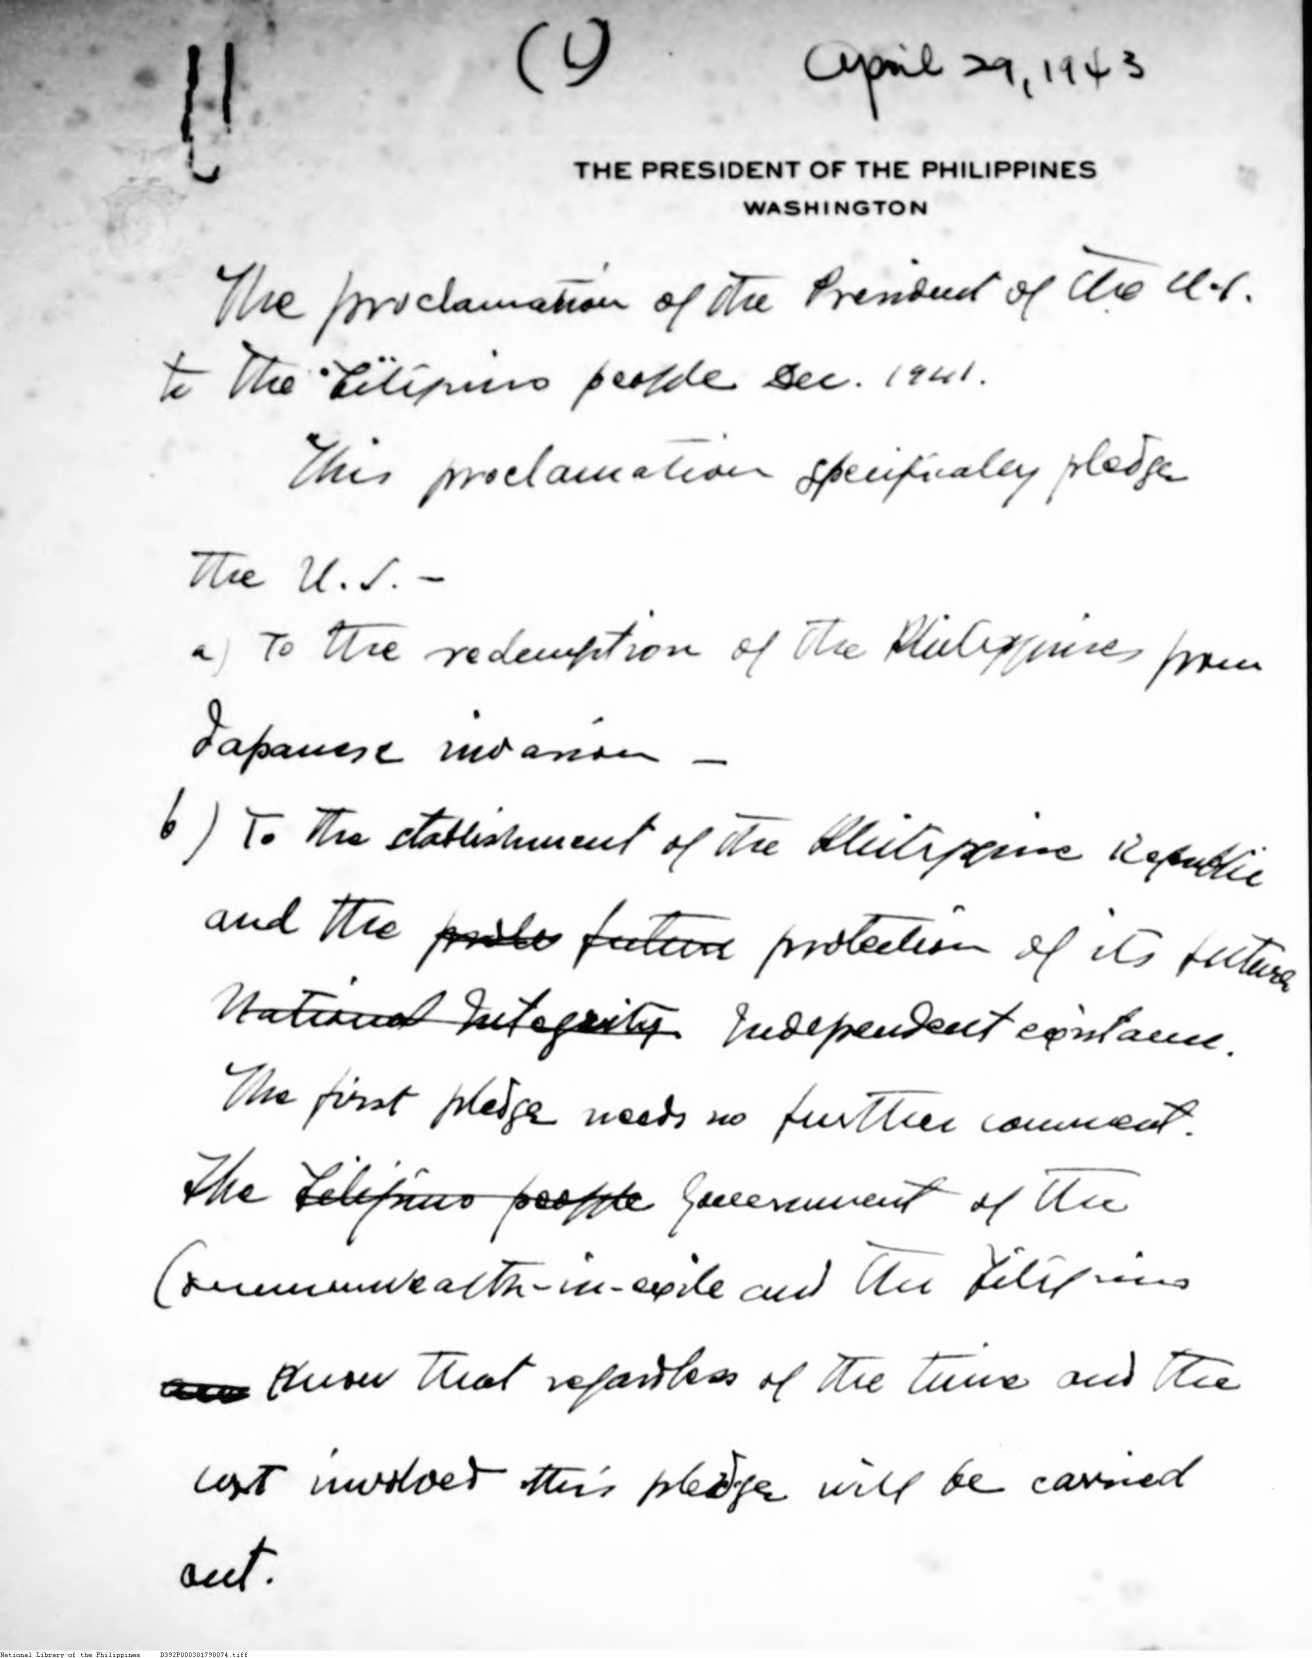 (1) April 29, 1943
THE PRESIDENT OF THE PHILIPPINES
WASHINGTON
The proclamation of the President of the U.S.
to the Filipino people Dec. 1941.
This proclamation specifically pledge
the U.S. -
a) To the redemption of the Philippines from
Japanese invasion -
b) To the establishment of the Philippine Republic
and the future protection of its future
National Integrity Independent existence.
The first pledge needs no further comment.
The Filipino people Government of the
Commonwealth-in-exile and the Filipinos
know that regardless of the time and the
cost involved this pledge will be carried
out.
National Library of the Philippines D392P000301790074.tiff